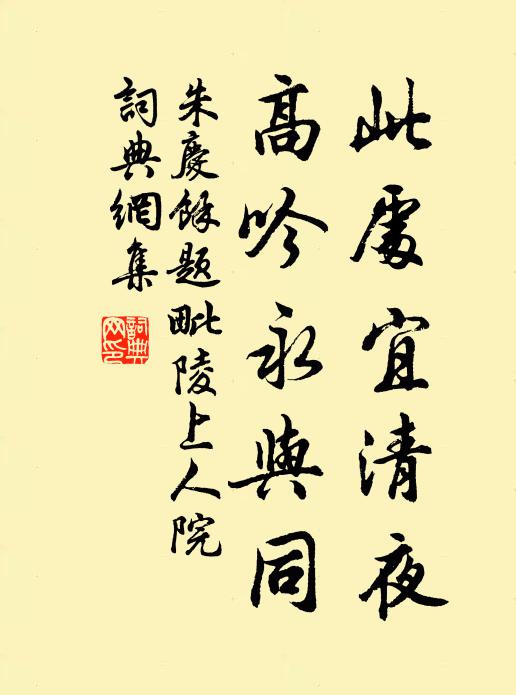 此處宜清夜
高吟永與同
朱慶餘題毗陵上人院
詞典網集
詞典網印